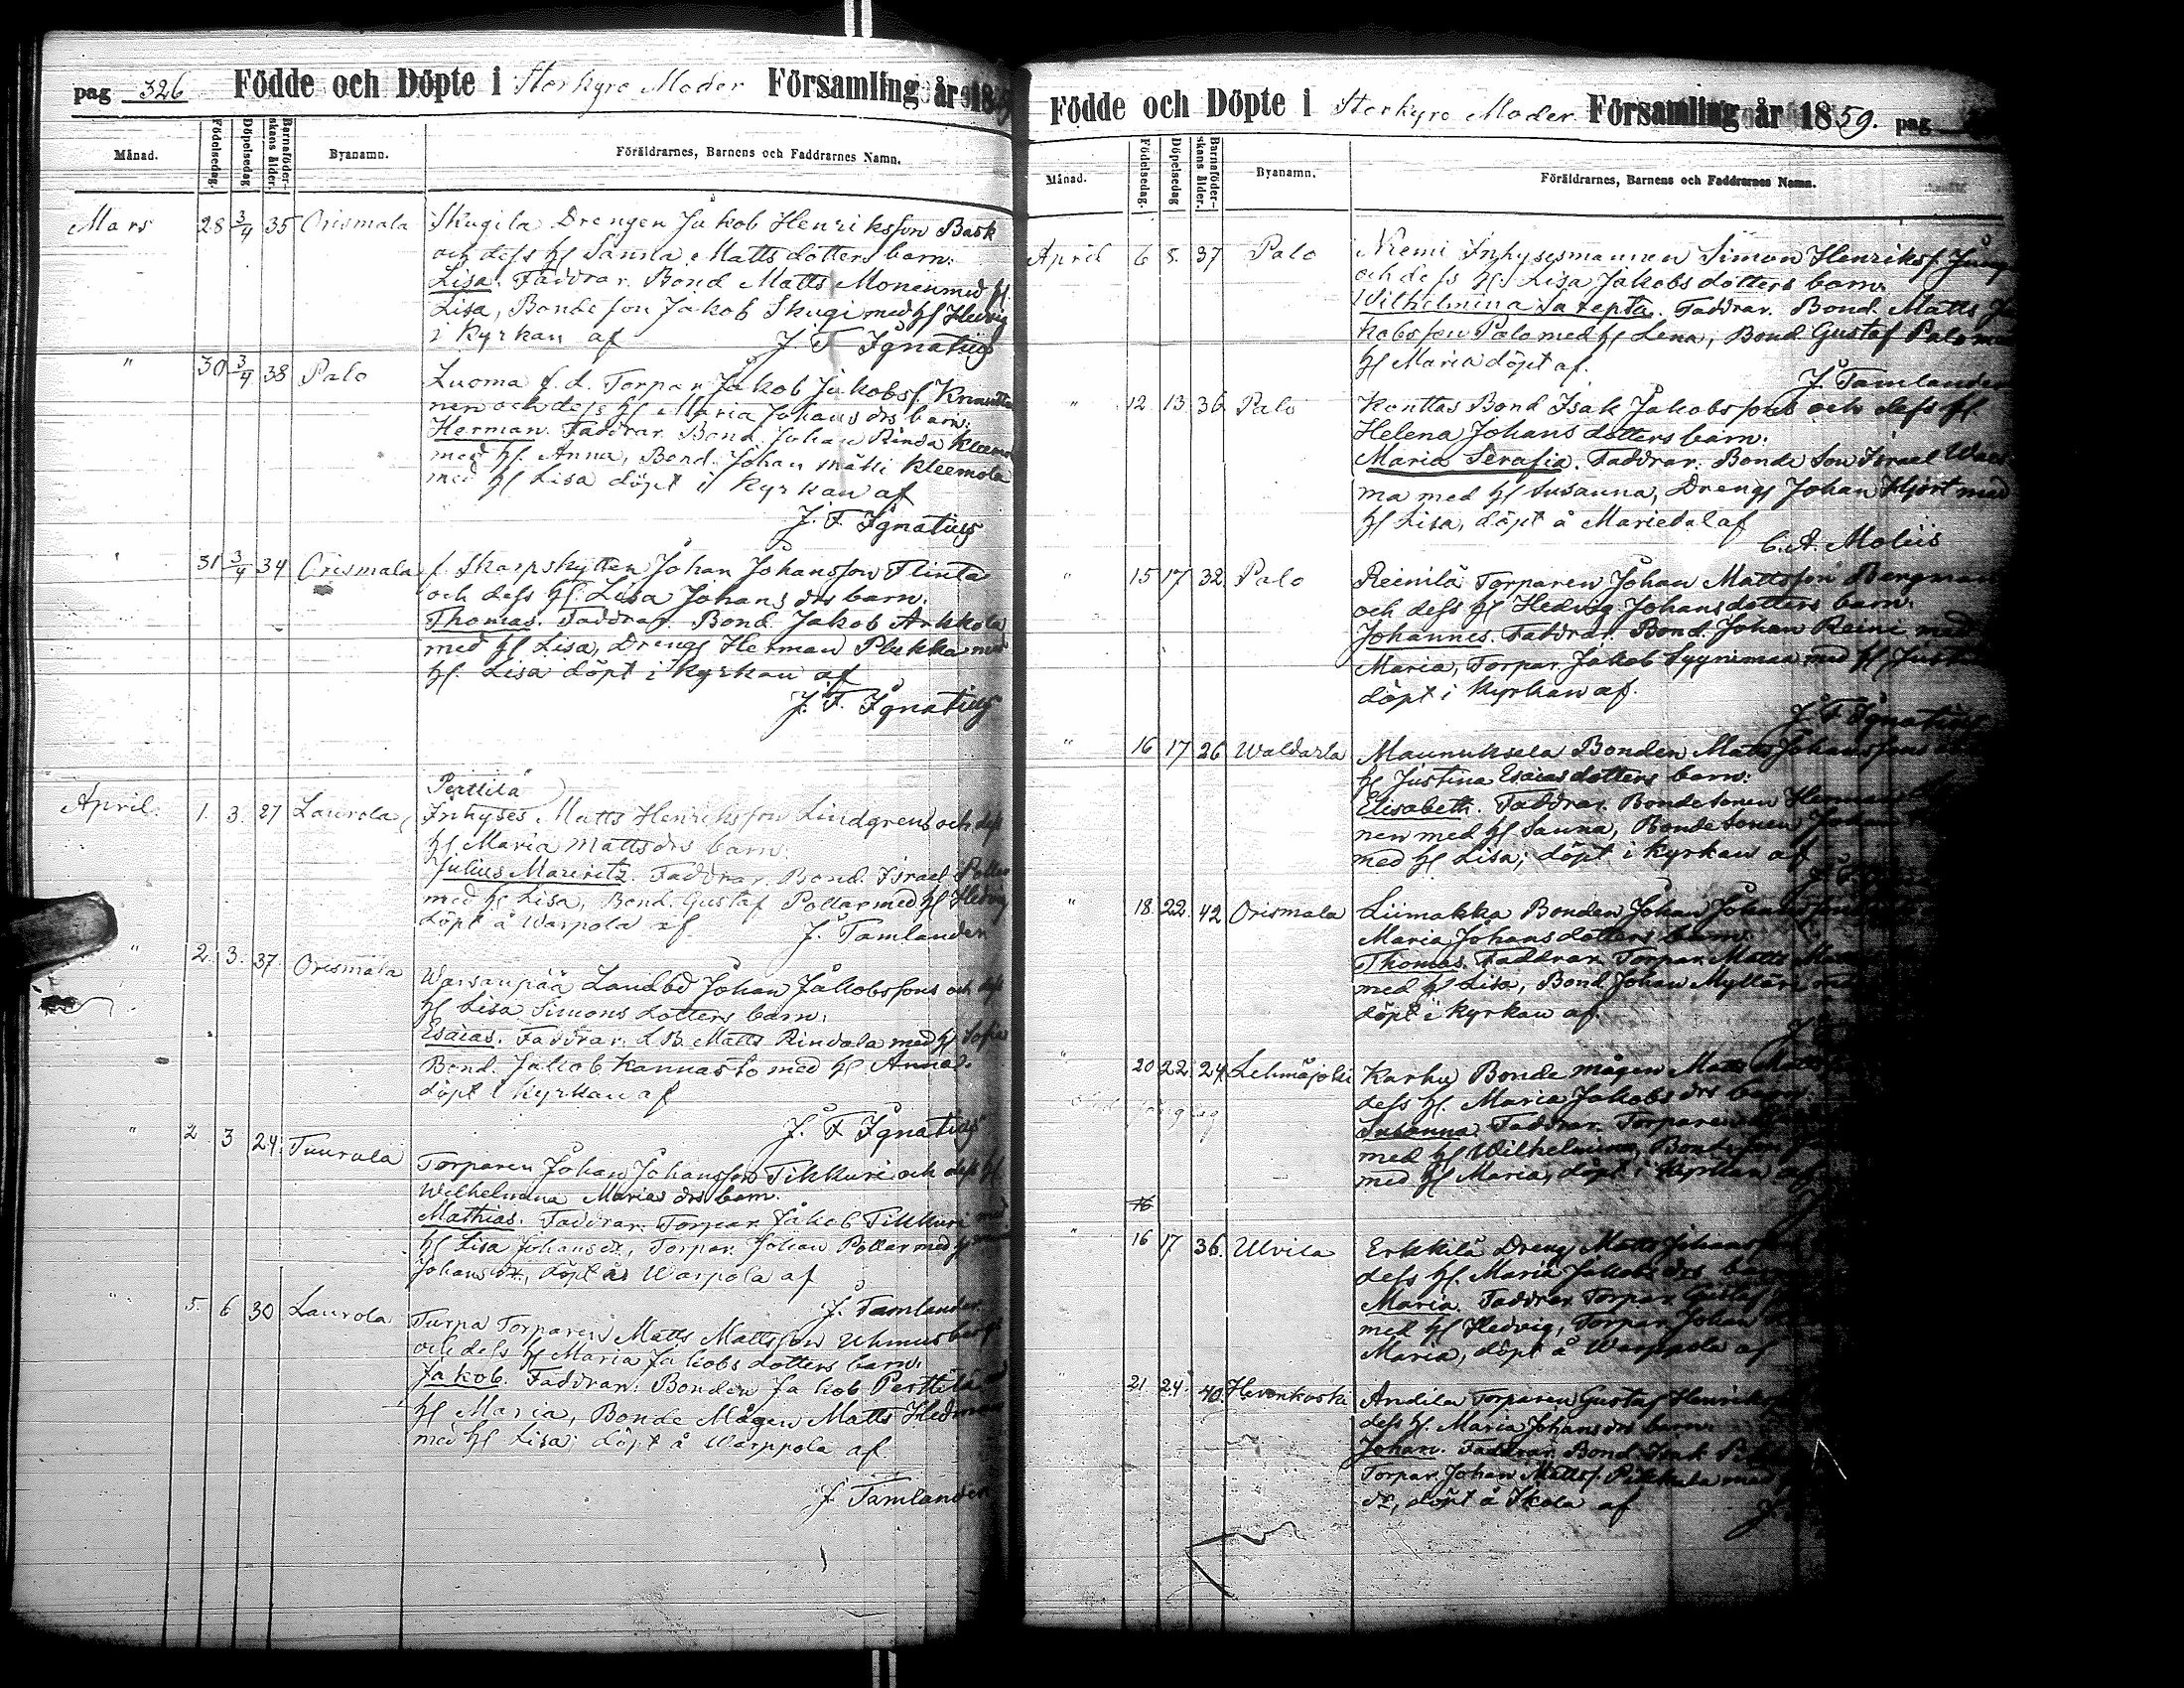 pag 326 Födde och Döpte i Storkyro Moder Församling år 185
Månad. Födelsedag. Döpelsedag Barnaföderskans ålder. Byanamn. Föräldrarnes, Barnens och Faddrarnes Namn.
Mars 28 3/4 35 Orismala Skugila Drengen Jakob Henriksson Bask
och dess h/ Sanna Matts dotters barn.
Lisa. Faddrar. Bond Matts Monen med h/
Lisa, Bonde son Jakob Skugi med h/ Hedvig
i Kyrkan af J. F. Ignatius
" 30 3/4 38 Palo Luoma f. d. Torpar Jakob Jakobs/
nen och dess h/ Maria Johans drs barn.
Herman. Faddrar. Bond. Johan Rinda
med h/ Anna, Bond. Johan mäki Kleemola
med h/ Lisa döpt i Kyrkan af
J. F. Ignatius
" 31 3/4 34 Orismala f. Skarpskytten Johan Johansson Flinta
och dess h/ Lisa Johans drs barn.
Thomas. Faddrar. Bond Jakob Arkkola
med h/ Lisa, Dreng Herman Plukka med
h/ Lisa döpt i Kyrkan af
J. F. Ignatius
Perttilä
April. 1. 3. 27 Laurola Inhyses Matts Henriksson Lindgrens och dess
h/ Maria Matts drs barn
Julius Mauritz. Faddrar. Bond. Israel Pollar
med h/ Lisa, Bond. Gustaf Pollar med h/ Hedvig
döpt å Warpola af J. Tamlander
" 2. 3. 37. Orismala Warsanpää Landbd Johan Jakobssons och dess
h/ Lisa Simons dotters barn.
Esaias. Faddrar. L B. Matts Rindala med h/ Sofia
Bond. Jakob Kannasto med h/ Anna.
döpt i Kyrkan af
J. F. Ignatius
" 2 3 24. Tuurala Torparen Johan Johansson Tikkuri och dess h/
Wilhelmina Marias drs barn.
Mathias. Faddrar. Torpar. Jakob Tikkuri med
h/ Lisa Johans dr, Torpar. Johan Pollar med h/
Johans dr., döpt å Warpola af
J. Tamlander.
" 5. 6 30 Laurola Turpa Torparen Matts Mattsson
och dess h/ Maria Jakobs dotters barn.
Jakob. Faddrar. Bonden Jakob Perttilä
h/ Maria, Bonde Mågen Matts Hedman
med h/ Lisa; döpt å Warppola af
J. Tamlander
Födde och Döpte i Storkyro Moder. Församling år 1859. pag
Månad. Födelsedag. Döpelsedag Barnaföderskans ålder. Byanamn. Föräldrarnes, Barnens och Faddrarnes Namn.
April 6 8. 37 Palo Niemi Inhysesmannen Simon Henriks/
och dess h/ Lisa Jakobs dotters barn.
Wilhelmina Sarepta. Faddrar. Bond. Matts Ja
kobsson Palo med h/ Lena, Bond Gustaf Palo med
h/ Maria döpt af.
J. Tamlander
" 12. 13. 36 Palo Konttas Bond Isak Jakobssons och dess h/.
Helena Johans dotters barn.
Maria Serafia. Faddrar. Bonde Son Israel
ma med h/ Susanna, Dreng Johan Hjort med
h/ Lisa, döpt å Mariedal af
C. A. Moliis
" 15 17 32. Palo Reinilä Torparen Johan Mattsson Bergman
och dess h/ Hedvig Johans dotters barn.
Johannes. Faddrar. Bond. Johan Reini med
Maria, Torpar. Jakob Syynimaa med h/
döpt i Kyrkan af.
J. F. Ignatius
" 16 17 26 Waldarla Maunuksela Bonden Matts Johanssons
h/ Justina Esaias dotters barn.
Elisabeth. Faddrar. Bonde sonen Herman
nen med h/ Sanna, Bonde sonen Johan
med h/ Lisa; döpt i Kyrkan af
" 18. 22. 42 Orismala Liimakka Bonden Johan
Maria Johans dotters barn.
Thomas. Faddrar. Torpar. Matts
med h/ Lisa, Bond Johan Myllari
döpt i Kyrkan af.
" 20 22. 24. Lehmäjoki Karhu Bonde mågen Matts
dess h/. Maria Jakobs drs barn.
Susanna. Faddrar. Torparen
med h/ Wilhelmina, Bondeson
med h/ Maria, döpt i Kyrkan af
16
" 16 17 36. Ulvila Erkkilä Dreng Matts Johans
dess h/. Maria Jakobs drs barn
Maria. Faddrar. Torpar. Gustaf
med h/ Hedvig, Torpar. Johan
Maria, döpt å Warppola af
" 21 24. 40. Hevonkoski Andila Torparen Gustaf Henriks
dess h/. Maria Johans drs barn.
Johan. Faddrar. Bond. Isak
Torpar. Johan Matts/. Pukkala med
dr, döpt å Skola af J.